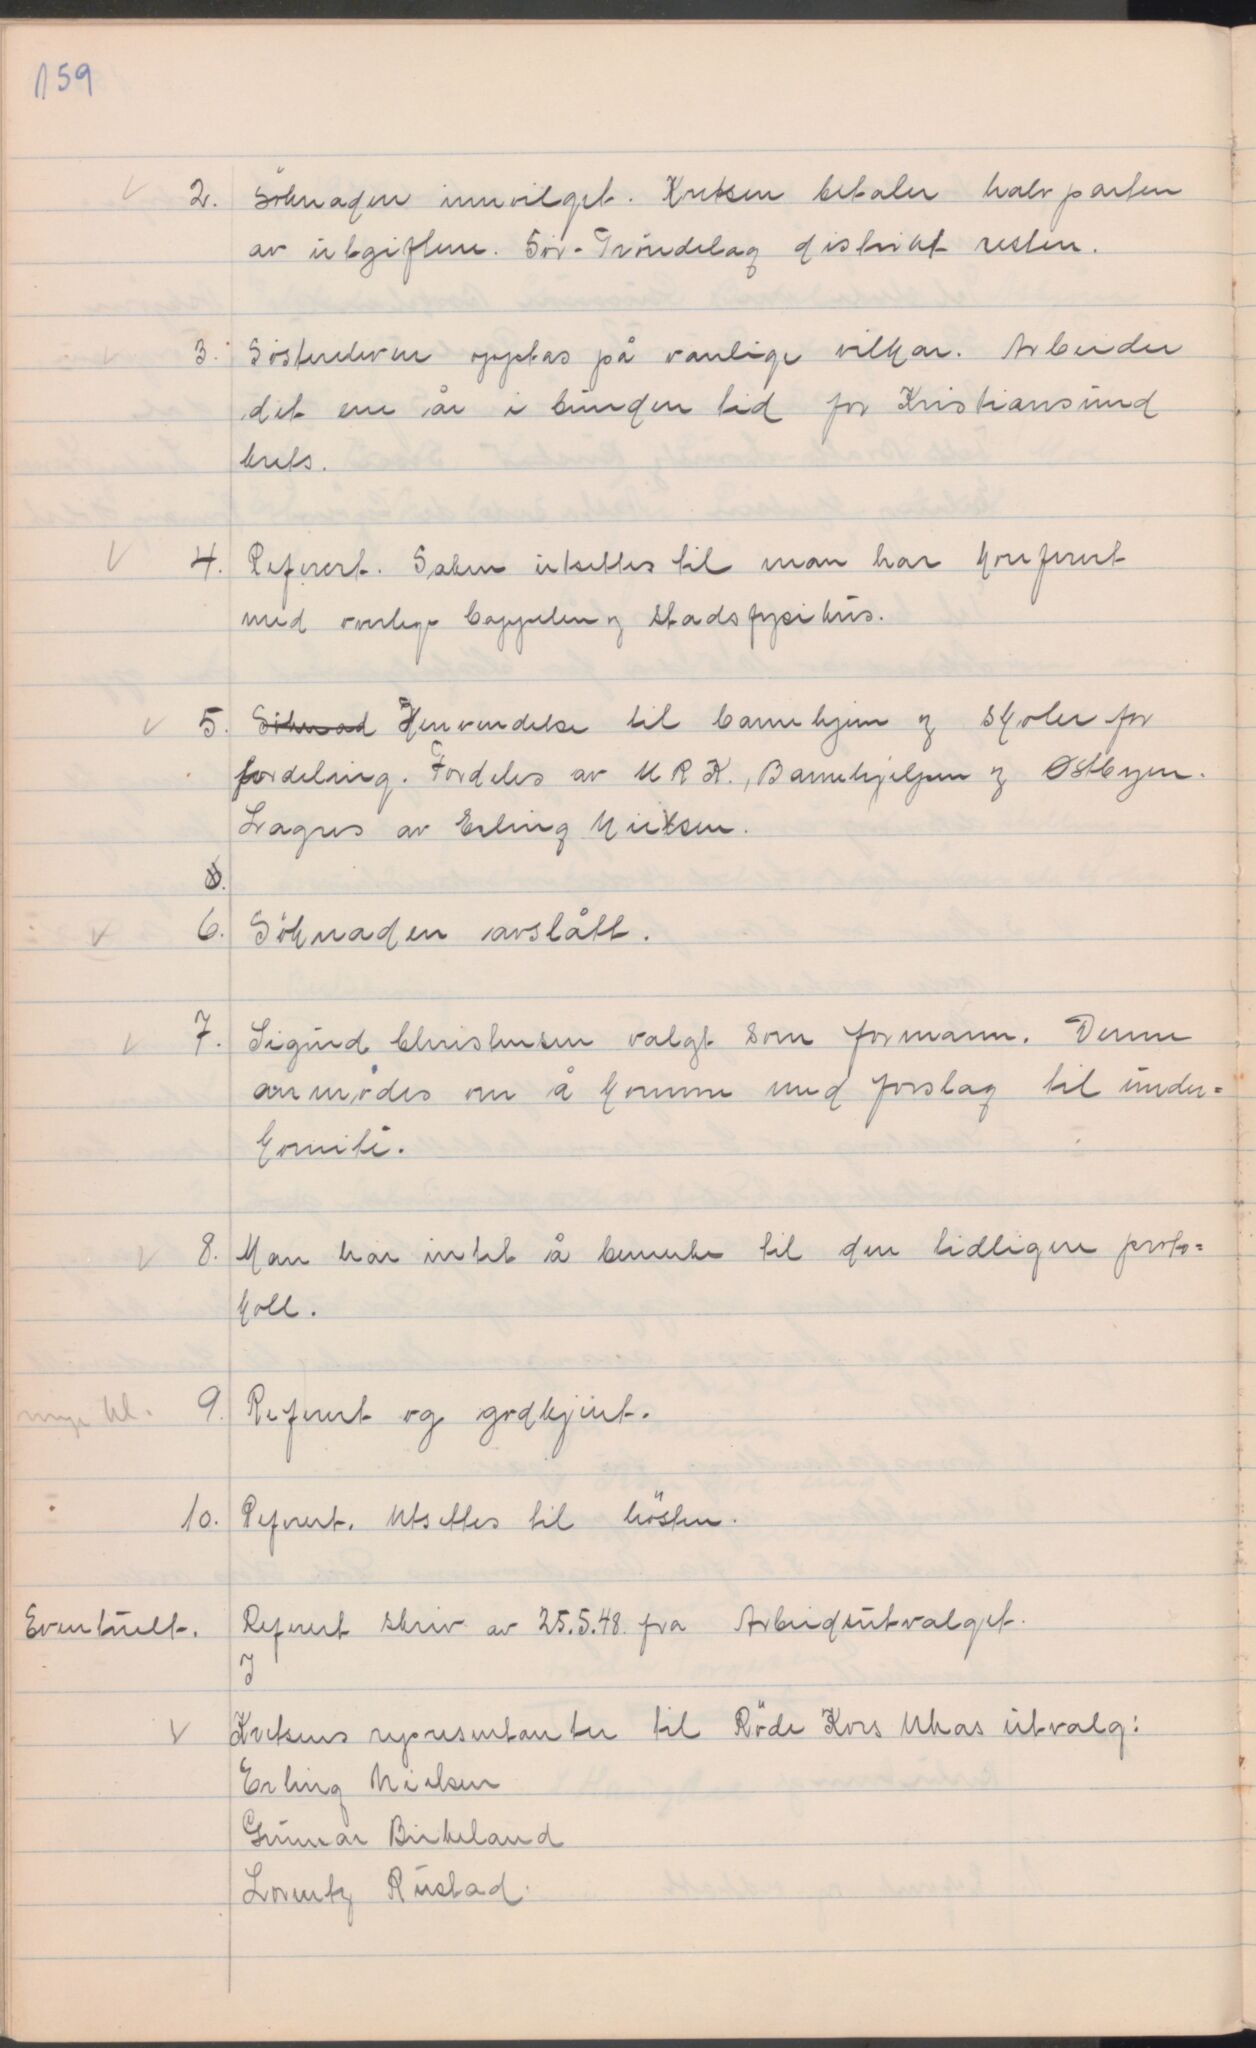 159
2. Söknaden innvilget. Kretsen betaler halvparten
av utgiftene. Sör-Tröndelag distrikt resten.
3. Sösterelever opptas på vanlige vilkår. Arbeider
det ene år i bunden tid for Kristiansund
krets.
4. Referert. Saken utsettes til man har konferert
med overlege Cappelen og stadsfysikus.
5. Söknad Henvendelse til barnehjem og skoler for
fordeling. Fordeles av U R K., Barnehjelpen og Østbyen.
Lagres av Erling Nielsen.
6. Söknaden avslått.
7. Sigurd Christensen valgt som formann. Denne
anmodes om å komme med forslag til under=
komité.
8. Man har intet å bemerke til den tidligere proto=
koll.
9. Referert og godkjent.
10. Referert. Utsettes til hösten.
Eventuelt. Referert skriv av 25.5.48. fra Arbeidsutvalget.
I
Kretsens representanter til Röde Kors Ukas utvalg:
Erling Nielsen
Gunnar Birkeland
Lorentz Rustad.